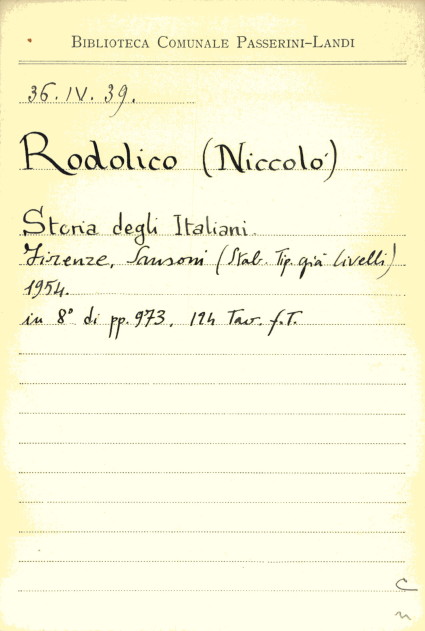 BIBLIOTECA COMUNALE PASSERINI-LANDI
36. IV. 39.
Rodolico (Niccolò)
Storia degli Italiani.
Firenze, Sansoni (Stab. Tip. già Civelli)
1954.
in 8° di pp. 973. 124 Tav. f.T.
C